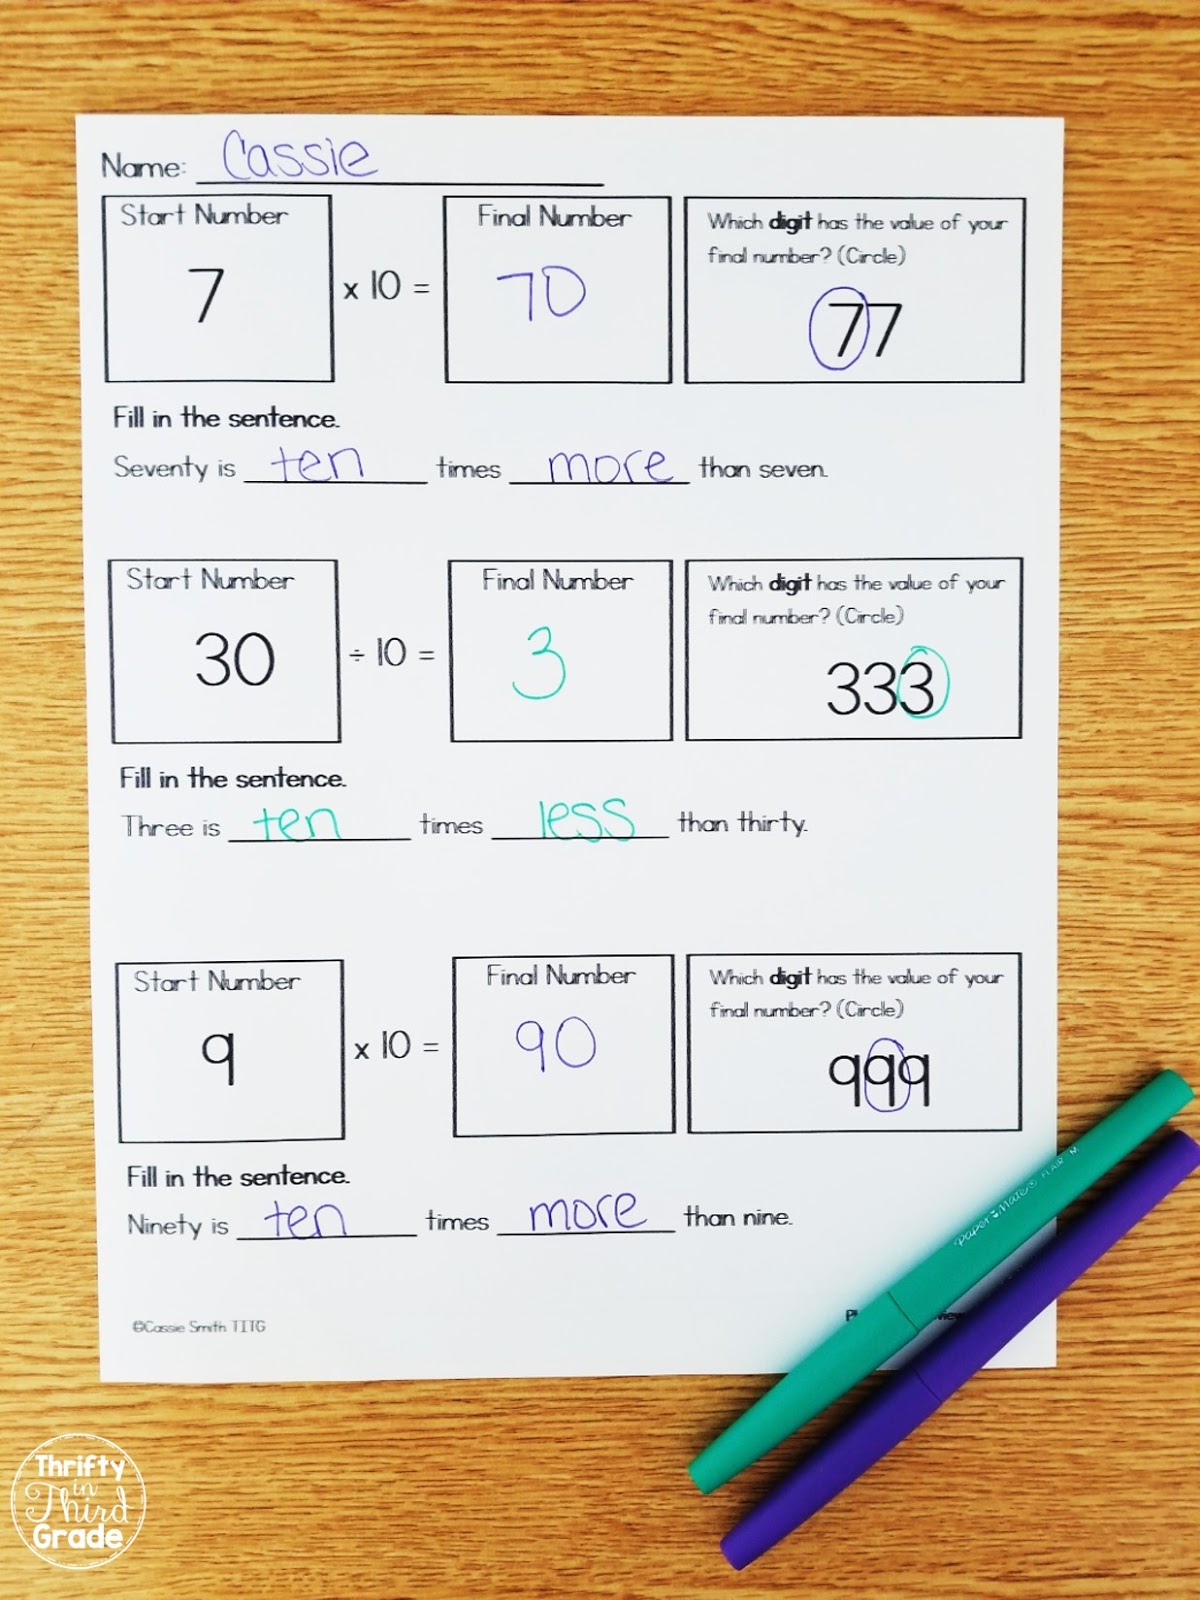 Name: Cassie
Start Number
7
x 10 =
Final Number
70
Which digit has the value of your
final number? (Circle)
77
Fill in the sentence.
Seventy is ten times more than seven.
Start Number
30
÷ 10 =
Final Number
3
Which digit has the value of your
final number? (Circle)
333
Fill in the sentence.
Three is ten times less than thirty.
Start Number
9
x 10 =
Final Number
90
Which digit has the value of your
final number? (Circle)
999
Fill in the sentence.
Ninety is ten times more than nine.
©Cassie Smith TITG
paper Mate® FLAIR M
Thrifty
in
Third
Grade